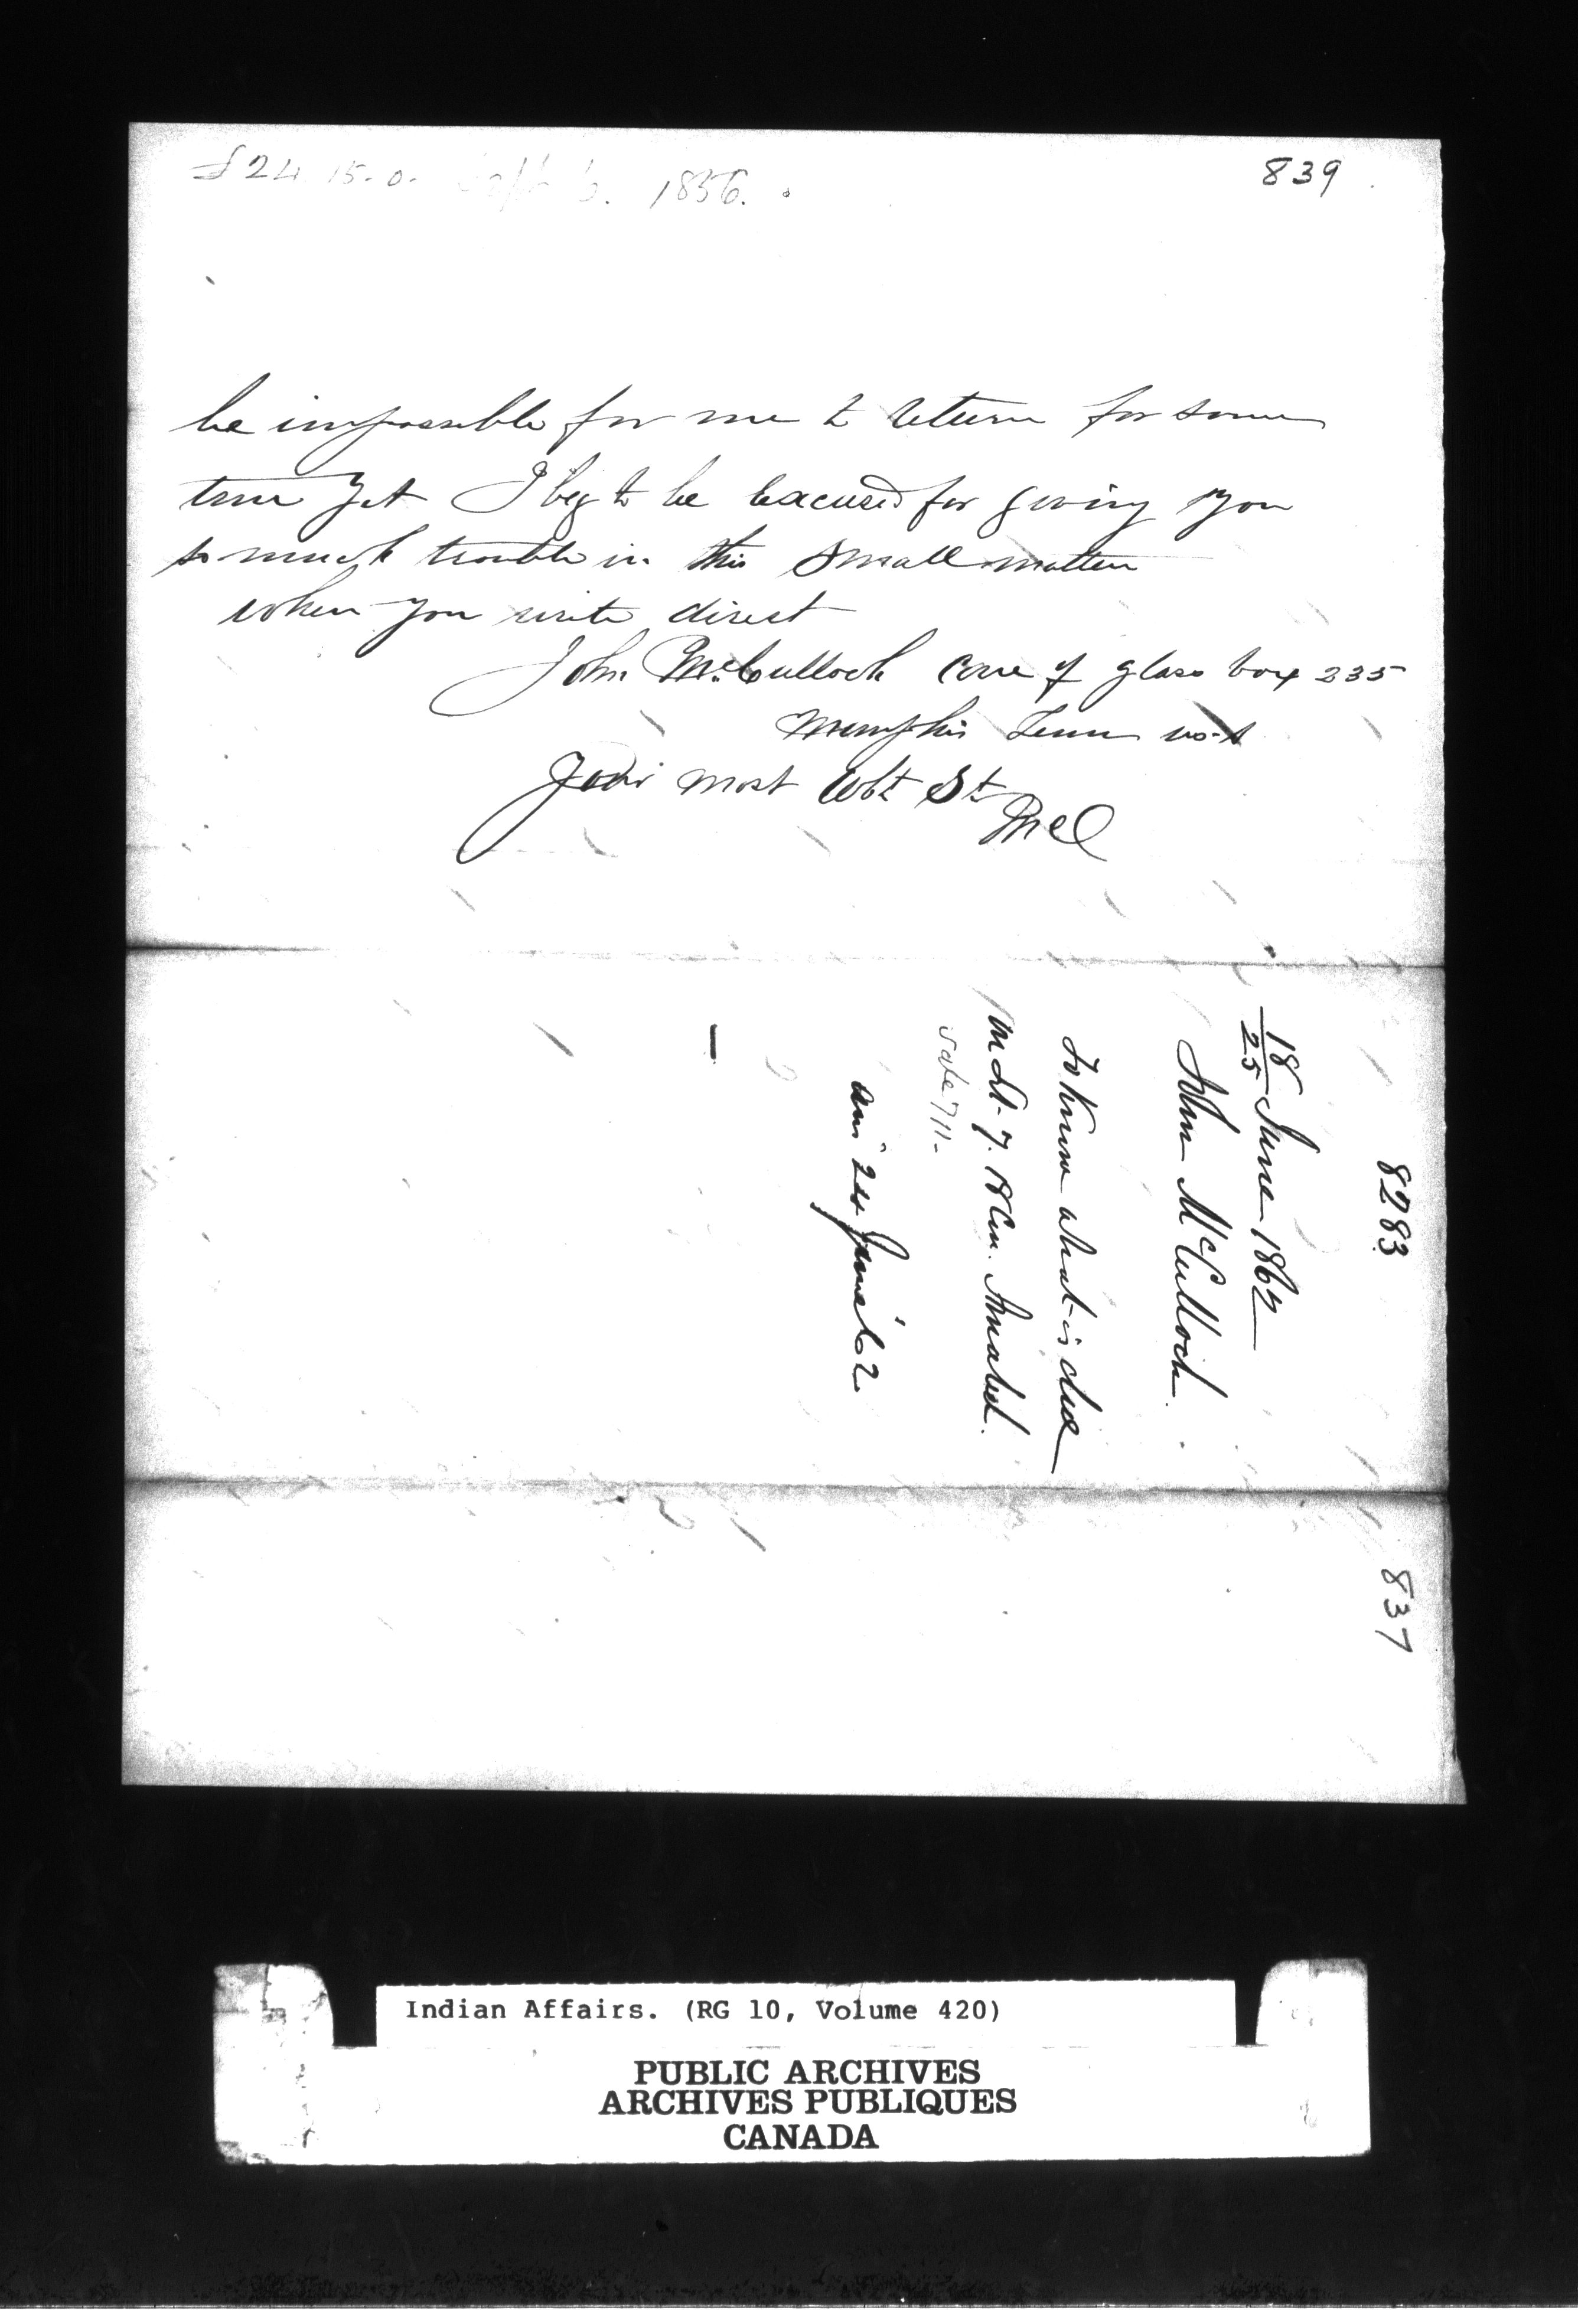 £24. 15. 0. 1856.
839
be impossible for me to return for some
time yet I beg to be Excused for giving you
so much trouble in this small matter
when you write direct
John McCulloch Care of glass box 235
Memphis Tenn
Your most Obt St
McC
8283
18/25 June 1862
John McCulloch
To Know what is due
on Lt. 7. 18 Con. Amabel.
Sale 711.
ans 24 June '62
837
Indian Affairs. (RG 10, Volume 420)
PUBLIC ARCHIVES
ARCHIVES PUBLIQUES
CANADA